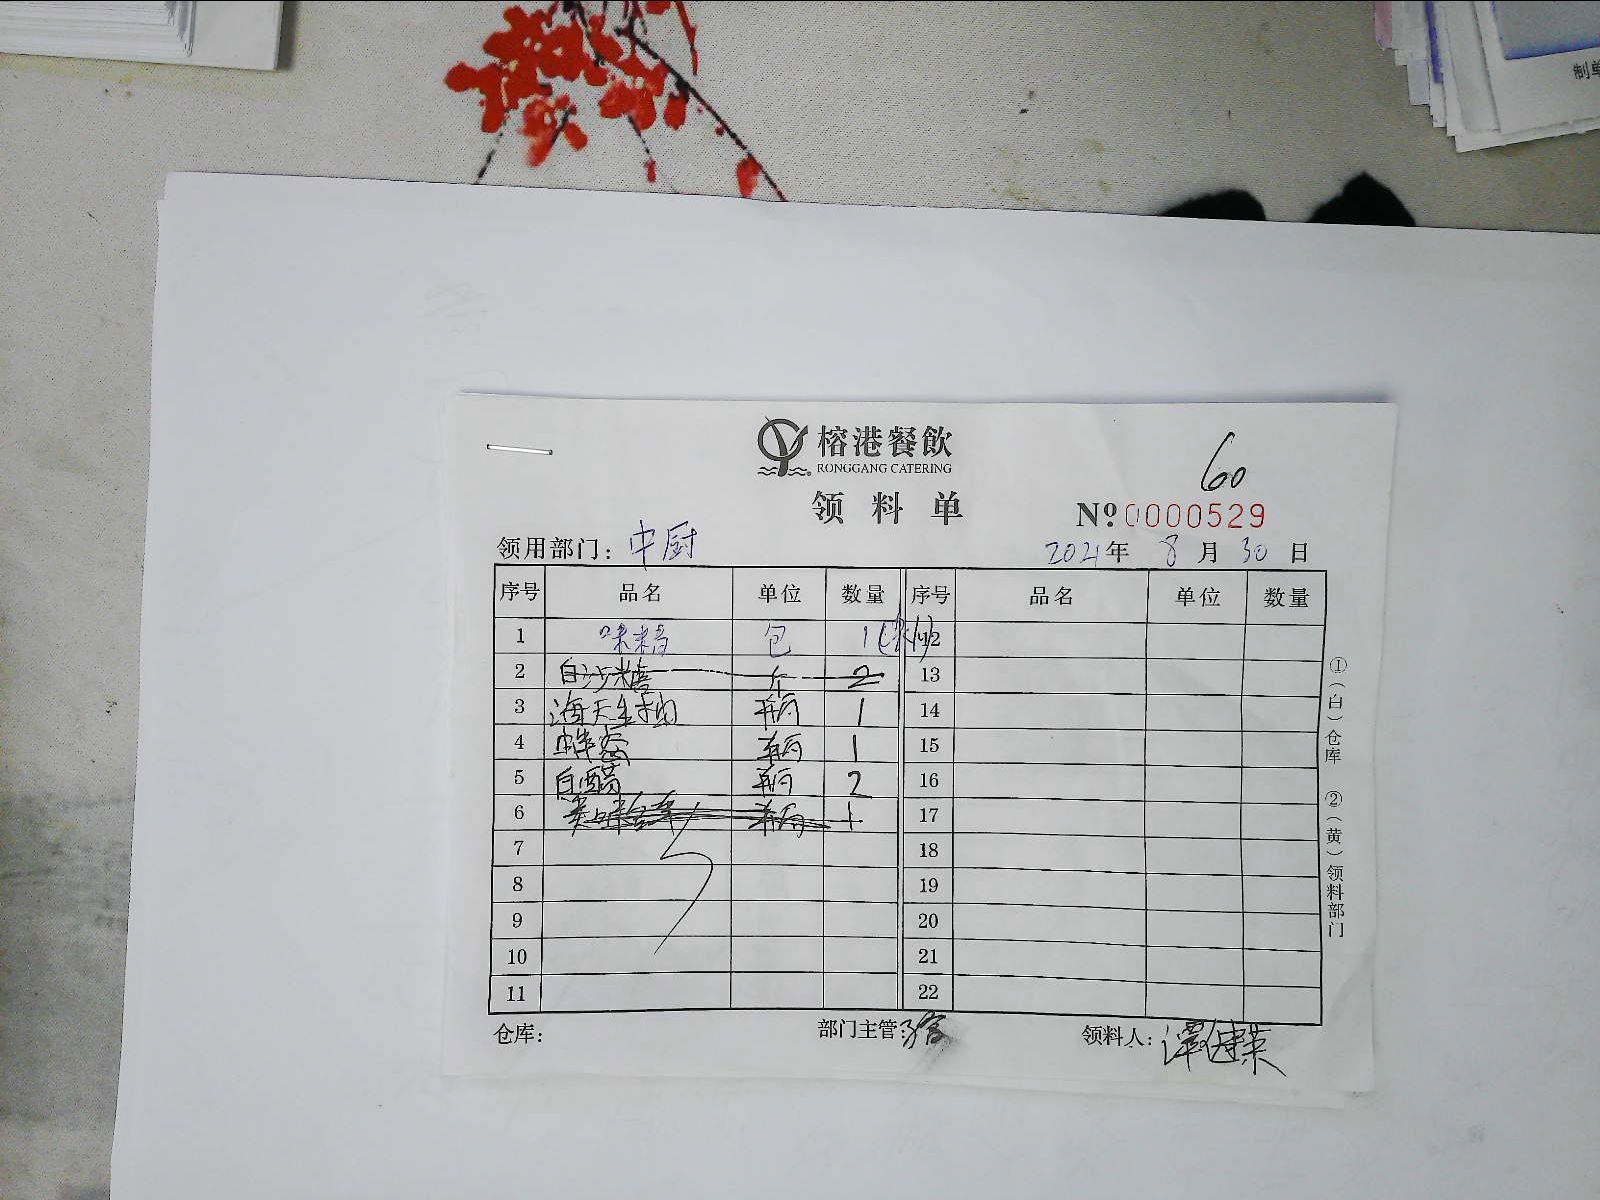 制单
榕港餐飲
RONGGANG CATERING
60
领料单
№ 0000529
领用部门：中厨
2021年 8月 30日
序号 品名 单位 数量 序号 品名 单位 数量
1 味精 包 1 12
2 白沙糖 斤 2 13
3 海天生抽 瓶 1 14
4 蜂蜜 瓶 1 15
5 白醋 瓶 2 16
6 瓶 1 17
7 18
8 19
9 20
10 21
11 22
①（白）仓库 ②（黄）领料部门
仓库： 部门主管： 领料人：谭健荣